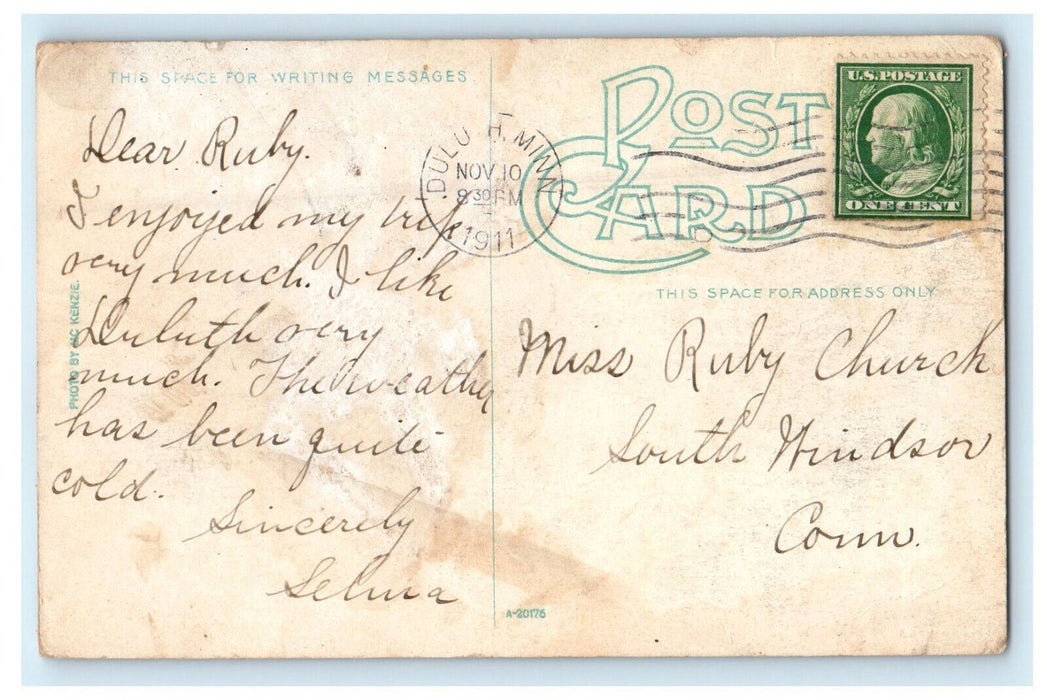 THIS SPACE FOR WRITING MESSAGES
Dear Ruby.
I enjoyed my trip
very much. I like
Duluth very
much. The weather
has been quite
cold.
Sincerely
Selma
PHOTO BY MC KENZIE.
POST
CARD
DULUTH, MINN.
NOV 10
8 30 PM
1911
U.S. POSTAGE
ONE CENT
THIS SPACE FOR ADDRESS ONLY
Miss Ruby Church
South Windsor
Conn.
A-20176